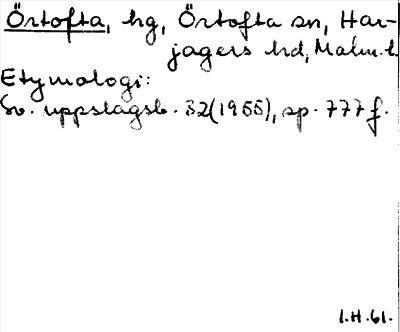 Örtofta, hg, Örtofta sn, Har-
jagers hd, Malm. l.
Etymologi:
Sv. uppslagsb. 32(1955), sp. 777 f.
I.H.61.